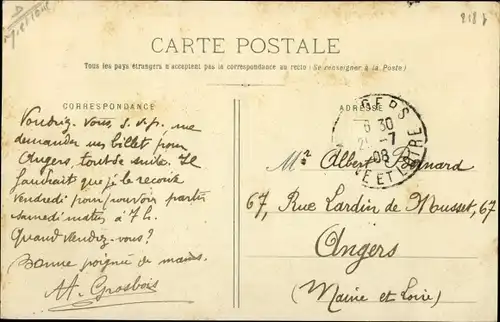 CARTE POSTALE
Tous les pays étrangers n'acceptent pas la correspondance au recto (Se renseigner à la Poste)
CORRESPONDANCE
Voudriez-vous, s.v.p. me
demander un billet pour
Angers, tout de suite. Il
faudrait que je le reçoive
vendredi pour pouvoir partir
samedi matin à 7 h.
Quand viendrez-vous?
Bonne poignée de mains.
H. Grosbois
ADRESSE
GERS
6 30
-7
08
E ET LOIRE
Mr Albert Bernard
67, Rue Lardin de Musset, 67
Angers
(Maine et Loire)